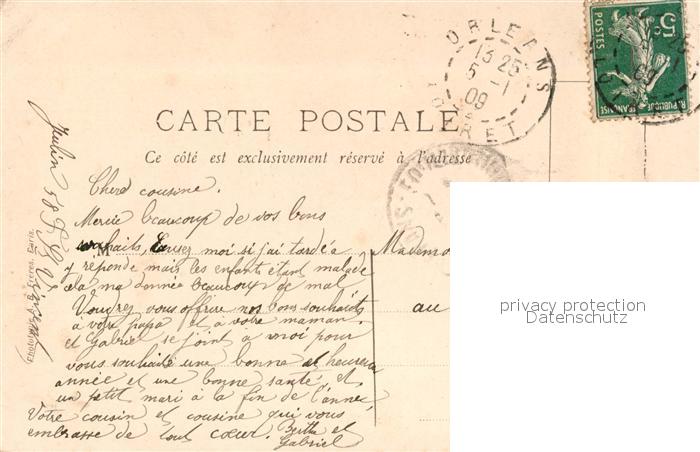 ORLEANS
13 25
5 - 1
09
LOIRET
5c
POSTES
REPUBLIQUE FRANÇAISE
CARTE POSTALE
Ce côté est exclusivement réservé à l'adresse
Cherd cousine.
Mercie beaucoup de vos bons
souhaits, Excusez moi si j'ai tardé a
y réponde mais les enfants étant malade
cela ma donnée beaucoup de mal
Voudrez vous offrire nos bons souhaits
a votre papa et a votre maman.
et Gabriel se joint a moi pour
vous souhaité une bonne et heureuse
année et une bonne santé, et
un petit mari a la fin de l'année,
Votre cousin et cousine qui vous
embrasse de tout cœur. Berthe et
Gabriel
M
Mademo
au
privacy protection
Datenschutz